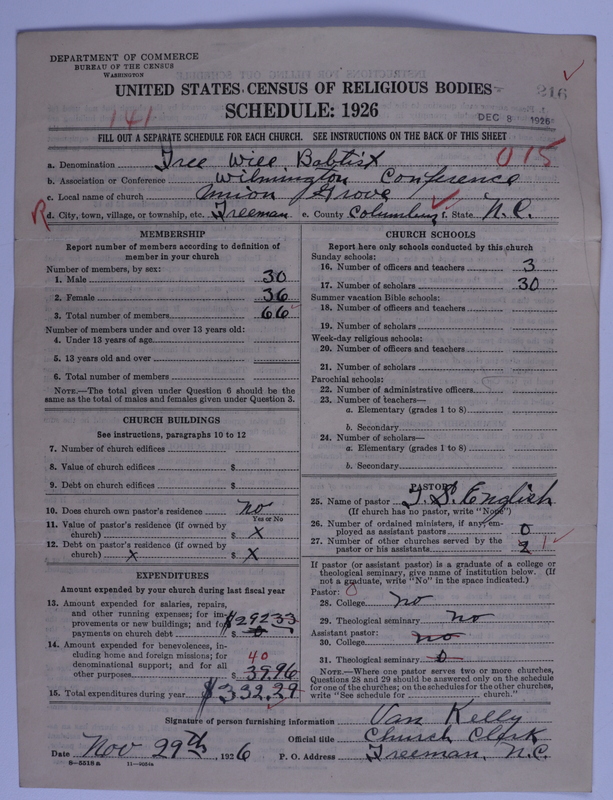 DEPARTMENT OF COMMERCE
BUREAU OF THE CENSUS
WASHINGTON
216
UNITED STATES CENSUS OF RELIGIOUS BODIES
141
SCHEDULE: 1926
DEC 8 1926
FILL OUT A SEPARATE SCHEDULE FOR EACH CHURCH. SEE INSTRUCTIONS ON THE BACK OF THIS SHEET
a. Denomination Free Will Babtist 015
b. Association or Conference Wilmington Conference
c. Local name of church Union Grove
R d. City, town, village, or township, etc. Freeman e. County Columbus f. State N.C.
MEMBERSHIP
Report number of members according to definition of
member in your church
Number of members, by sex:
1. Male 30
2. Female 36
3. Total number of members 66
Number of members under and over 13 years old:
4. Under 13 years of age
5. 13 years old and over
6. Total number of members
NOTE.—The total given under Question 6 should be the
same as the total of males and females given under Question 3.
CHURCH BUILDINGS
See instructions, paragraphs 10 to 12
7. Number of church edifices
8. Value of church edifices $
9. Debt on church edifices $
10. Does church own pastor's residence No
Yes or No
11. Value of pastor's residence (if owned by
church) $ X
12. Debt on pastor's residence (if owned by
church) X $ X
EXPENDITURES
Amount expended by your church during last fiscal year
13. Amount expended for salaries, repairs,
and other running expenses; for im-
provements or new buildings; and for $292 33
payments on church debt $
14. Amount expended for benevolences, in-
cluding home and foreign missions; for
denominational support; and for all 40
other purposes $ 39.96
15. Total expenditures during year $332.29
CHURCH SCHOOLS
Report here only schools conducted by this church
Sunday schools:
16. Number of officers and teachers 3
17. Number of scholars 30
Summer vacation Bible schools:
18. Number of officers and teachers
19. Number of scholars
Week-day religious schools:
20. Number of officers and teachers
21. Number of scholars
Parochial schools:
22. Number of administrative officers
23. Number of teachers—
a. Elementary (grades 1 to 8)
b. Secondary
24. Number of scholars—
a. Elementary (grades 1 to 8)
b. Secondary
PASTOR
25. Name of pastor English
(If church has no pastor, write "None")
26. Number of ordained ministers, if any, em-
ployed as assistant pastors 0
27. Number of other churches served by the
pastor or his assistants 2 1
If pastor (or assistant pastor) is a graduate of a college or
theological seminary, give name of institution below. (If
not a graduate, write "No" in the space indicated.)
Pastor: 0
28. College No
29. Theological seminary No
Assistant pastor:
30. College No
31. Theological seminary 0
NOTE.—Where one pastor serves two or more churches,
Questions 28 and 29 should be answered only on the schedule
for one of the churches; on the schedules for the other churches,
write "See schedule for church."
Signature of person furnishing information Van Kelly
Official title Church Clerk
Date Nov 29th, 1926 P. O. Address Freeman, N.C.
8—5518a